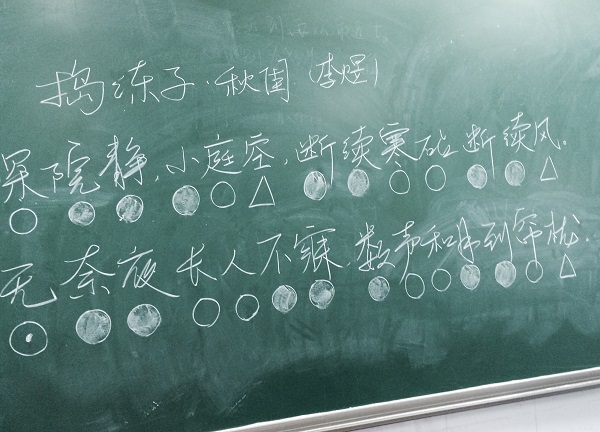 捣练子·秋闺（李煜）
深院静，小庭空，断续寒砧断续风。
无奈夜长人不寐，数声和月到帘栊。